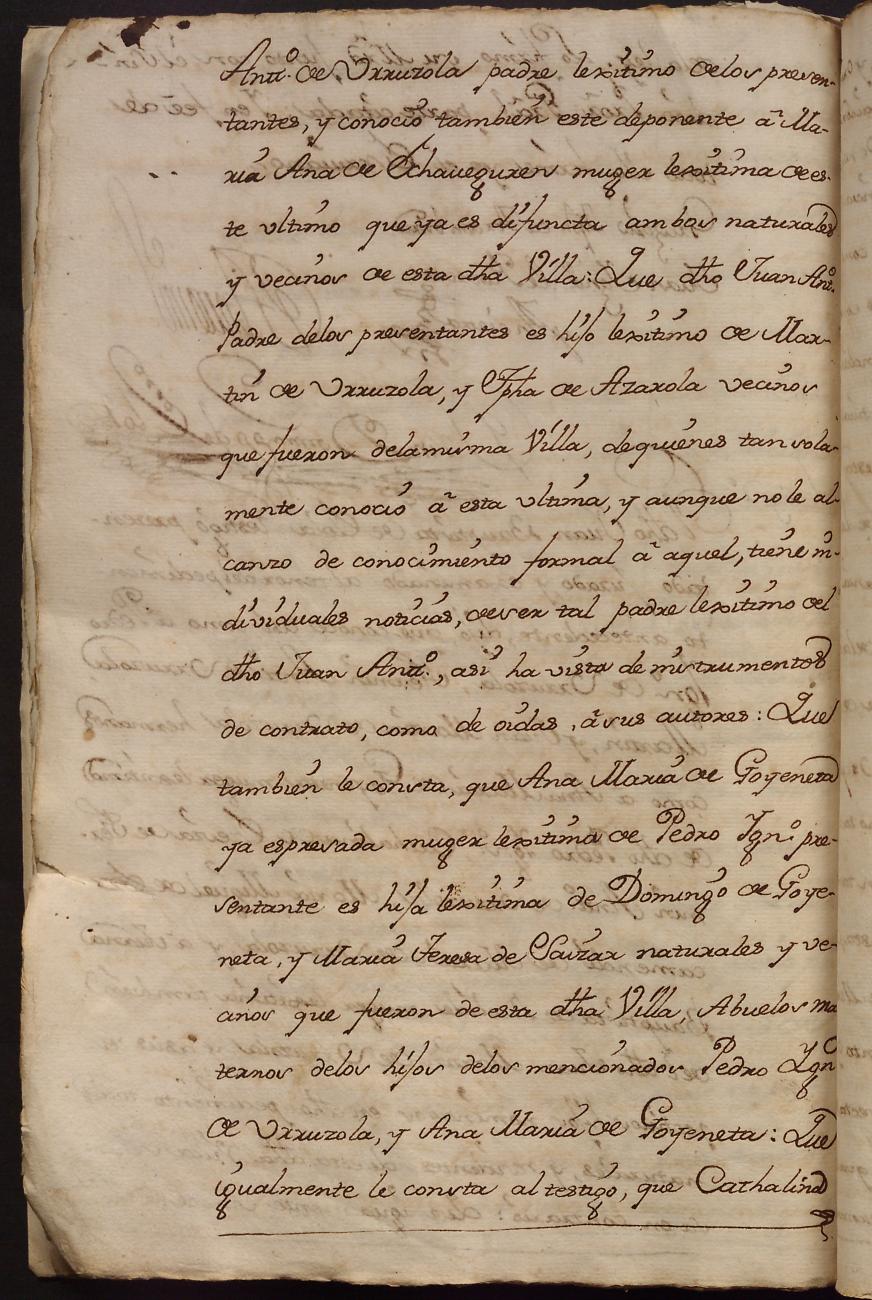 Antt.º de Vrruzola padre lexitimo delos presen-
tantes, y conociò tambien este deponente a Ma-
ria Ana de Echaueguren muger lexitima de es-
te vltimo que ya es difuncta ambos naturales
y vecinos de esta dha Villa: Que dho Juan Antº.
Padre delos presentantes es hijo lexitimo de Mar-
tin de Vrruzola, y Jpha de Azarola vecinos
que fueron delamisma Villa, dequienes tan sola-
mente conociò a esta vltima, y aunque no le al-
canzo de conocimiento formal a aquel, tiene in-
dividuales noticias, de ser tal padre lexitimo del
dho Juan Antt.º, asi ha vista de instrumentos
de contrato, como de oidas, a sus autores: Que
tambien le consta, que Ana Maria de Goyeneta
ya espresada muger lexitima de Pedro Ygn.º pre-
sentante es hija lexitima de Domingo de Goye-
neta, y Maria Teresa de Saizar naturales y ve-
cinos que fueron de esta dha Villa, Abuelos ma
ternos delos hijos delos mencionados Pedro Ygnº
de Vrruzola, y Ana Maria de Goyeneta: Que
igualmente le consta al testigo, que Cathalina